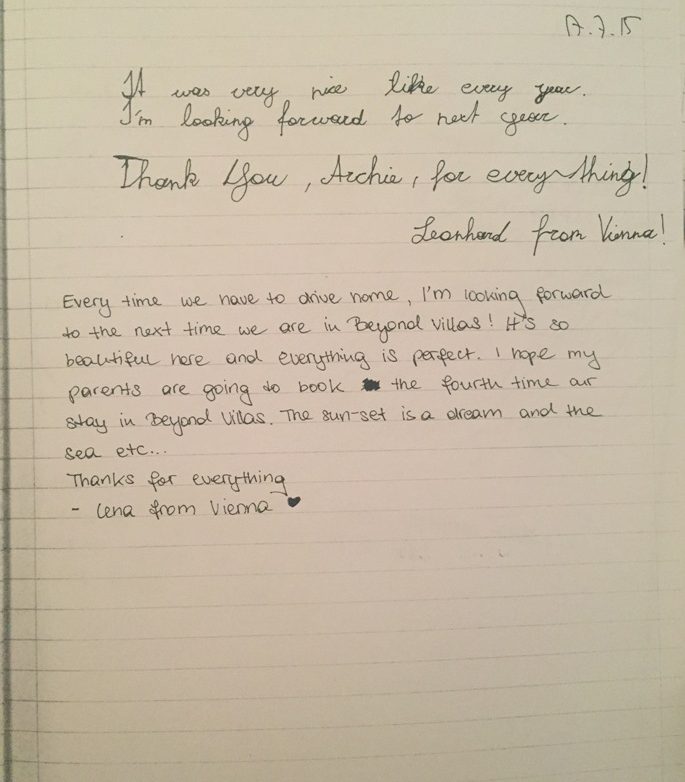 17.7.15
It was very nice like every year.
I'm looking forward to next year.
Thank You, Archie, for everything!
Leonhard from Vienna!
Every time we have to drive home, I'm looking forward
to the next time we are in Beyond Villas! It's so
beautiful here and everything is perfect. I hope my
parents are going to book the fourth time our
stay in Beyond Villas. The sun-set is a dream and the
sea etc...
Thanks for everything
- Lena from Vienna ♥